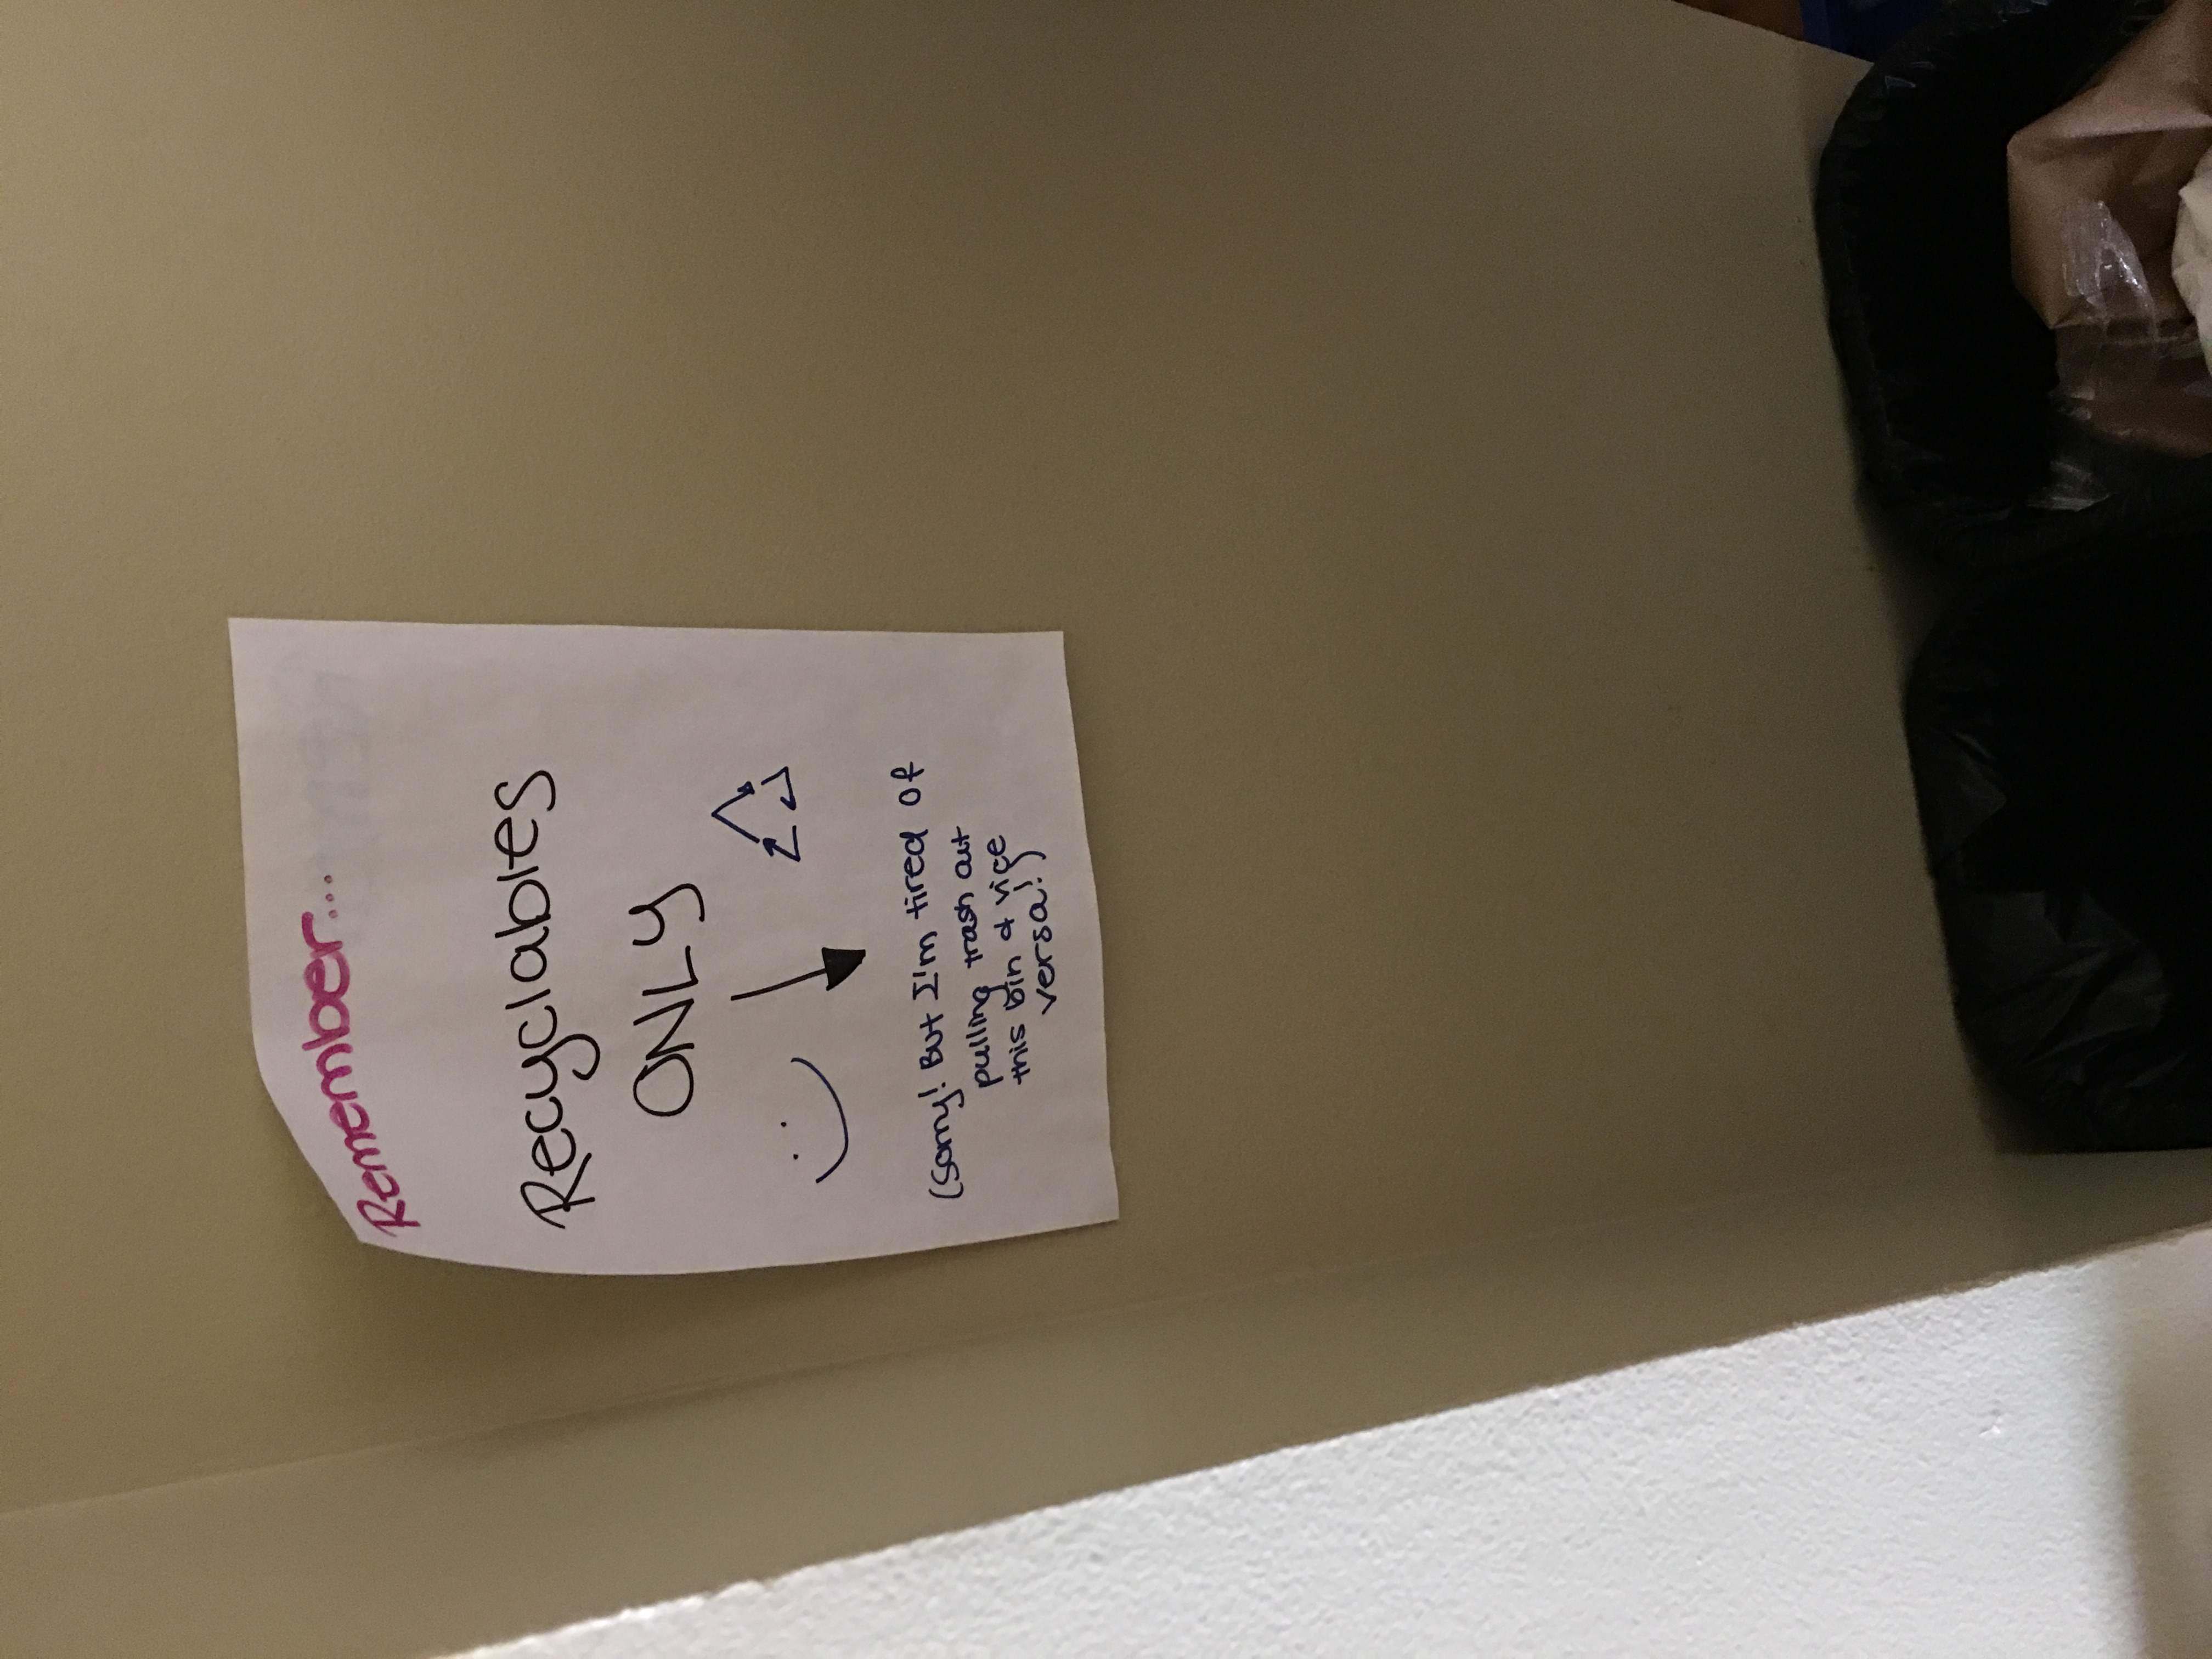 Remember...
Recyclables
ONLY
(Sorry! But I'm tired of
pulling trash out
this bin & vice
versa!)